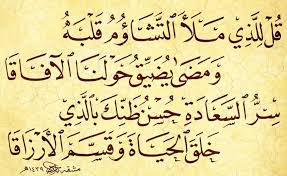 قُلْ لِلَّذِي مَلَأَ ٱلتَّشَاؤُمُ قَلْبَهُ
وَمَضَىٰ يُضَيِّقُ حَوْلَنَا ٱلْآفَاقَا
سِرُّ ٱلسَّعَادَةِ حُسْنُ ظَنِّكَ بِٱلَّذِي
خَلَقَ ٱلْحَيَاةَ وَقَسَّمَ ٱلْأَرْزَاقَا